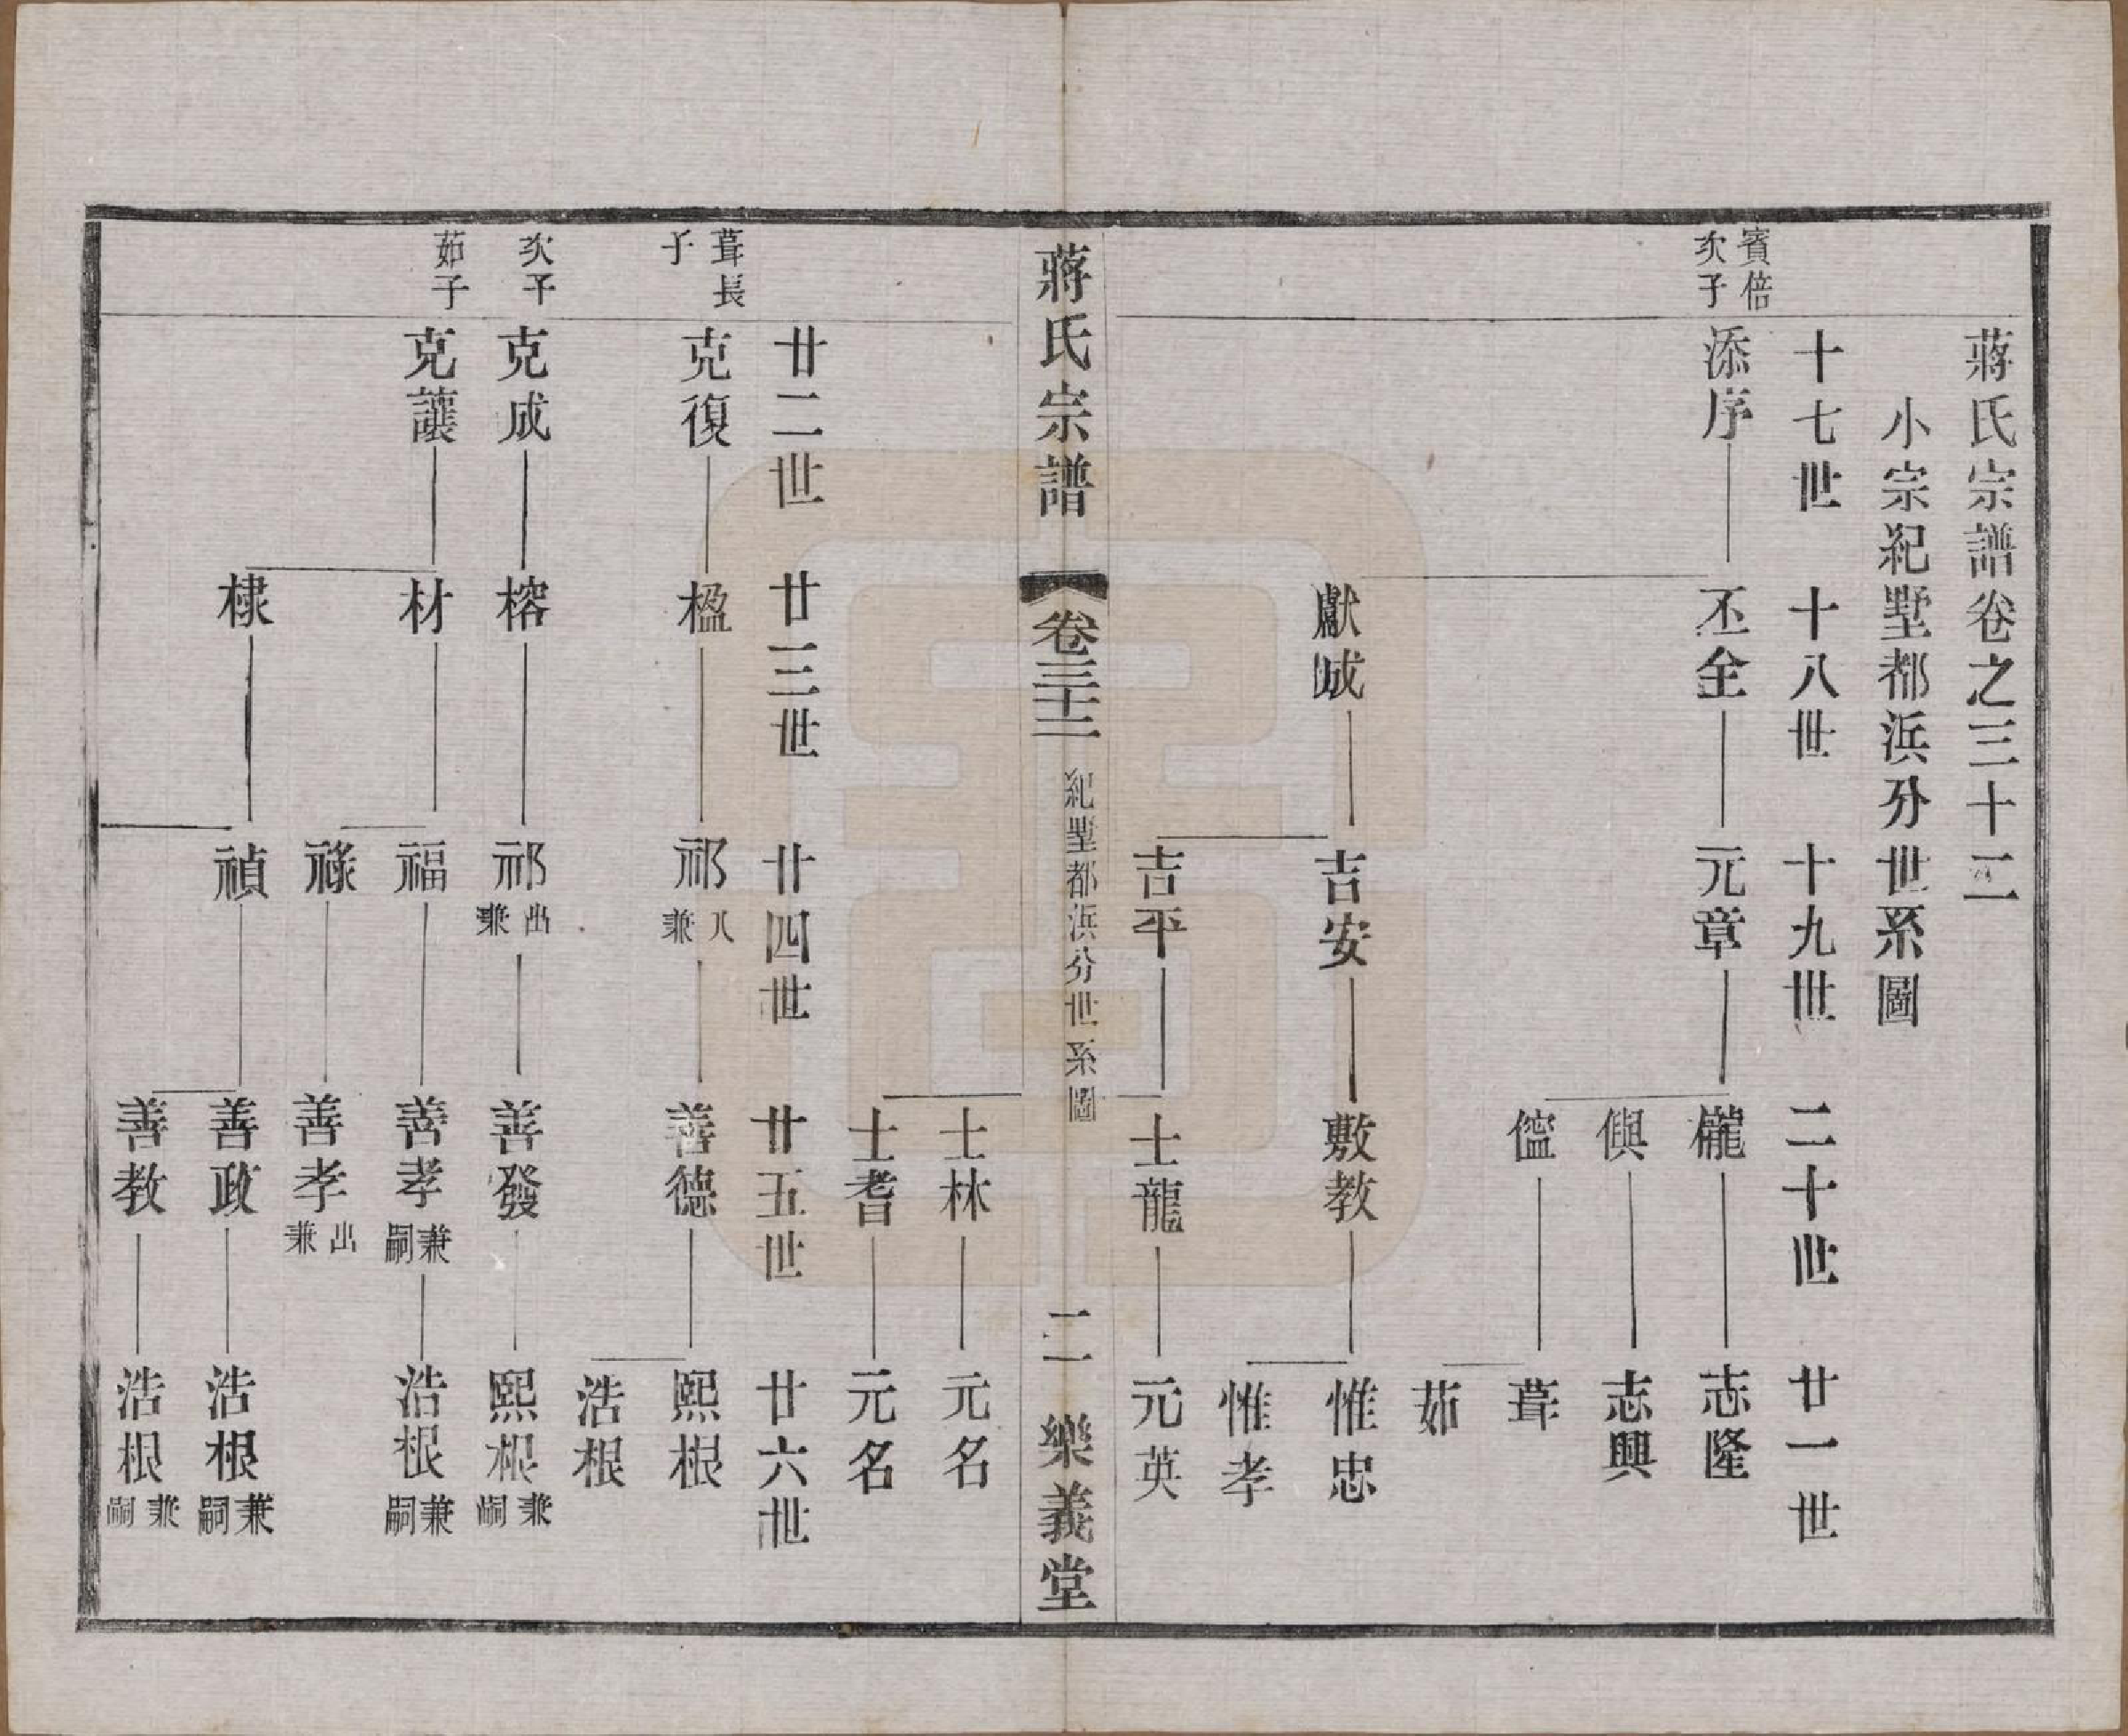 蔣氏宗譜卷之三十二
小宗紀墅都浜分世系圖
十七世 十八世 十九世 二十世 廿一世
賓倍
次子
添序 丕全 元章 儱 志隆
傎 志興
葺
茹
獻晠 吉安 敷教 惟忠
惟孝
吉平 士龍 元英
蔣氏宗譜 卷三十二 紀墅都浜分世系圖 二 樂義堂
士林 元名
士耆 元名
廿二世 廿三世 廿四世 廿五世 廿六世
葺長
子
克復 楹 祁 入兼 善德 熙根
浩根
次子
克成 榕 祁 出兼 善發 熙根 兼嗣
茹子
克讓 材 福 善孝 兼嗣 浩根 兼嗣
祿 善孝 出兼
棣 禎 善政 浩根 兼嗣
善教 浩根 兼嗣